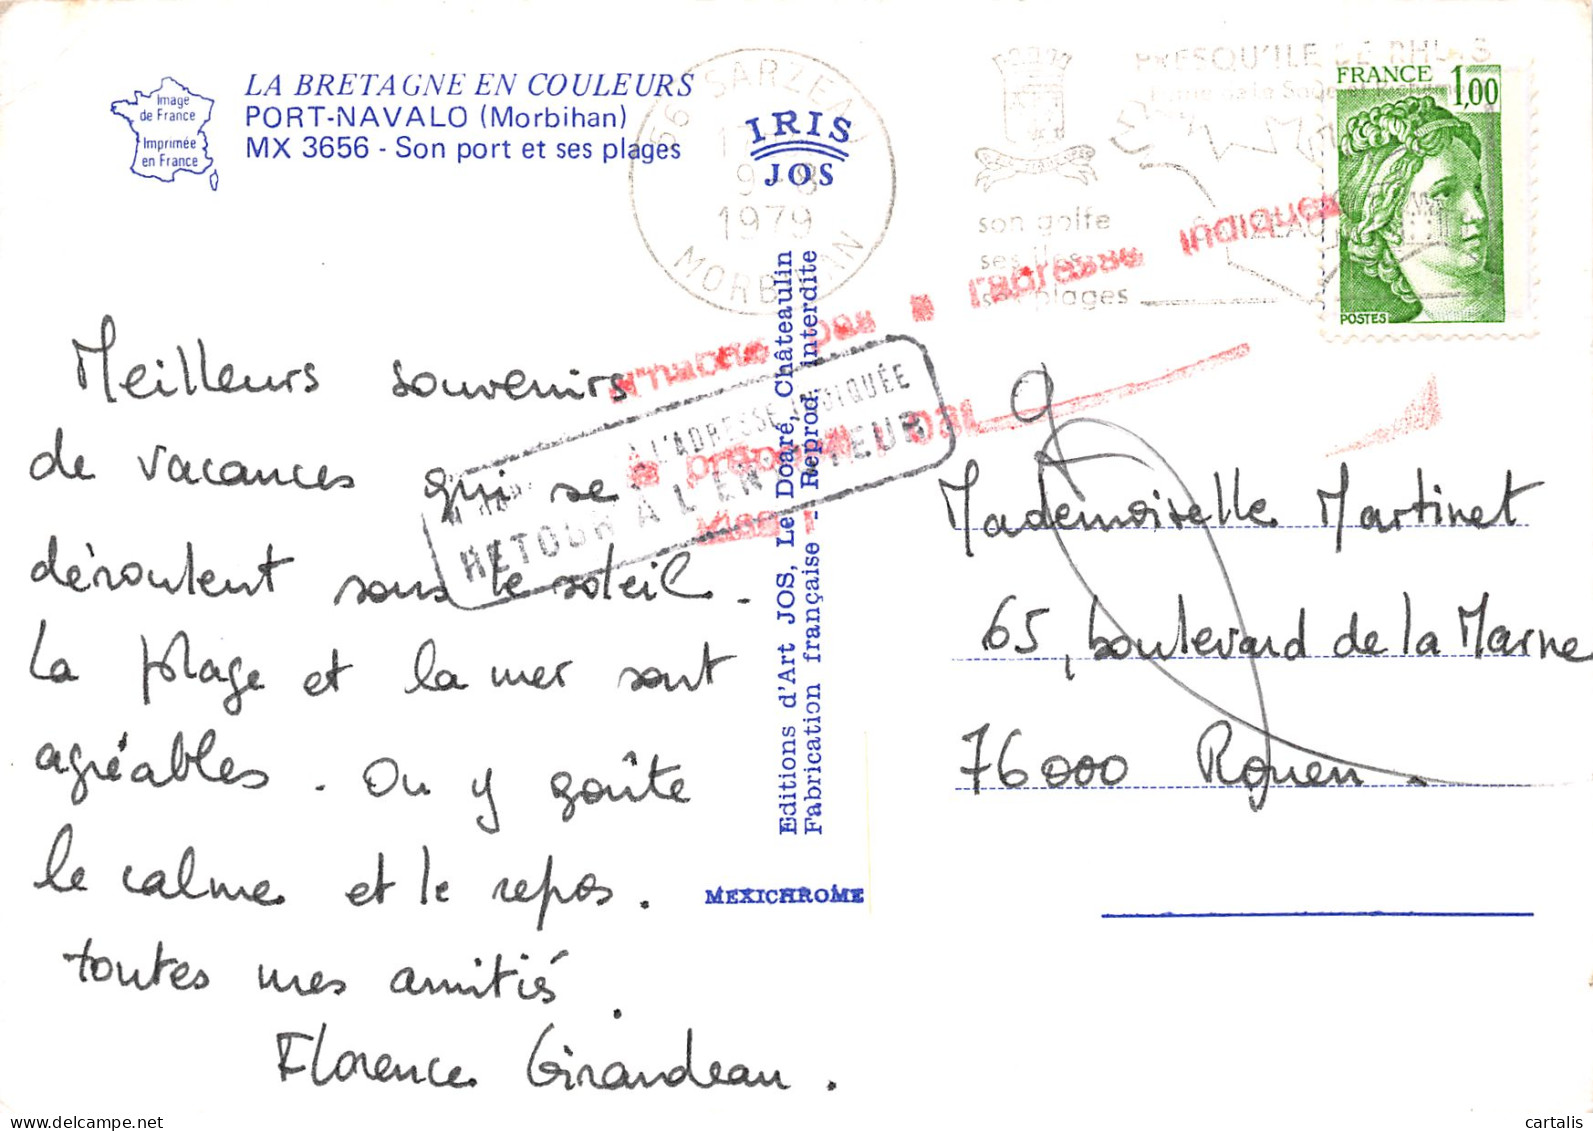 Image
de France
Imprimée
en France
LA BRETAGNE EN COULEURS
PORT-NAVALO (Morbihan)
MX 3656 - Son port et ses plages
IRIS
JOS
56 SARZEAU
9-8
1979
MORBIHAN
PRESQU'ILE DE RHUYS
son golfe
ses îles
ses plages
FRANCE 1,00
POSTES
n'habite pas à l'adresse indiquée
À L'ADRESSE INDIQUÉE
RETOUR À L'ENVOYEUR
Meilleurs souvenirs
de vacances qui se
déroulent sous le soleil.
La plage et la mer sont
agréables. On y goûte
le calme et le repos.
toutes mes amitiés.
Florence Girandeau.
Editions d'Art JOS, Le Doaré, Châteaulin
Fabrication française - Reprod. interdite
MEXICHROME
Mademoiselle Martinet
65, boulevard de la Marne
76000 Rouen.
cartalis
www.delcampe.net